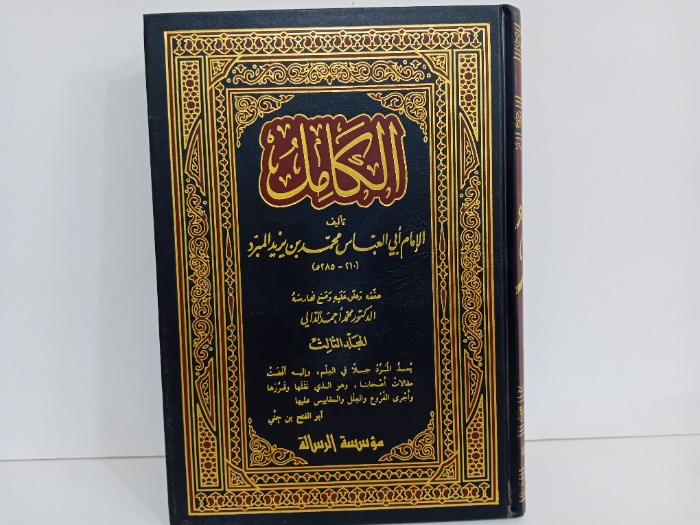 الكامل
تأليف
الإمام أبي العباس محمد بن يزيد المبرد
(٢١٠ - ٢٨٥هـ)
حققه وعلق عليه وصنع فهارسه
الدكتور محمد أحمد الدالي
المجلد الثالث
يُعدّ المُبرِّد جبلاً في العِلم، وإليه أفضت
مقالات أصحابنا، وهو الذي نقلها وقررها
وأجرى الفروع والعلل والمقاييس عليها
أبو الفتح بن جني
مؤسسة الرسالة